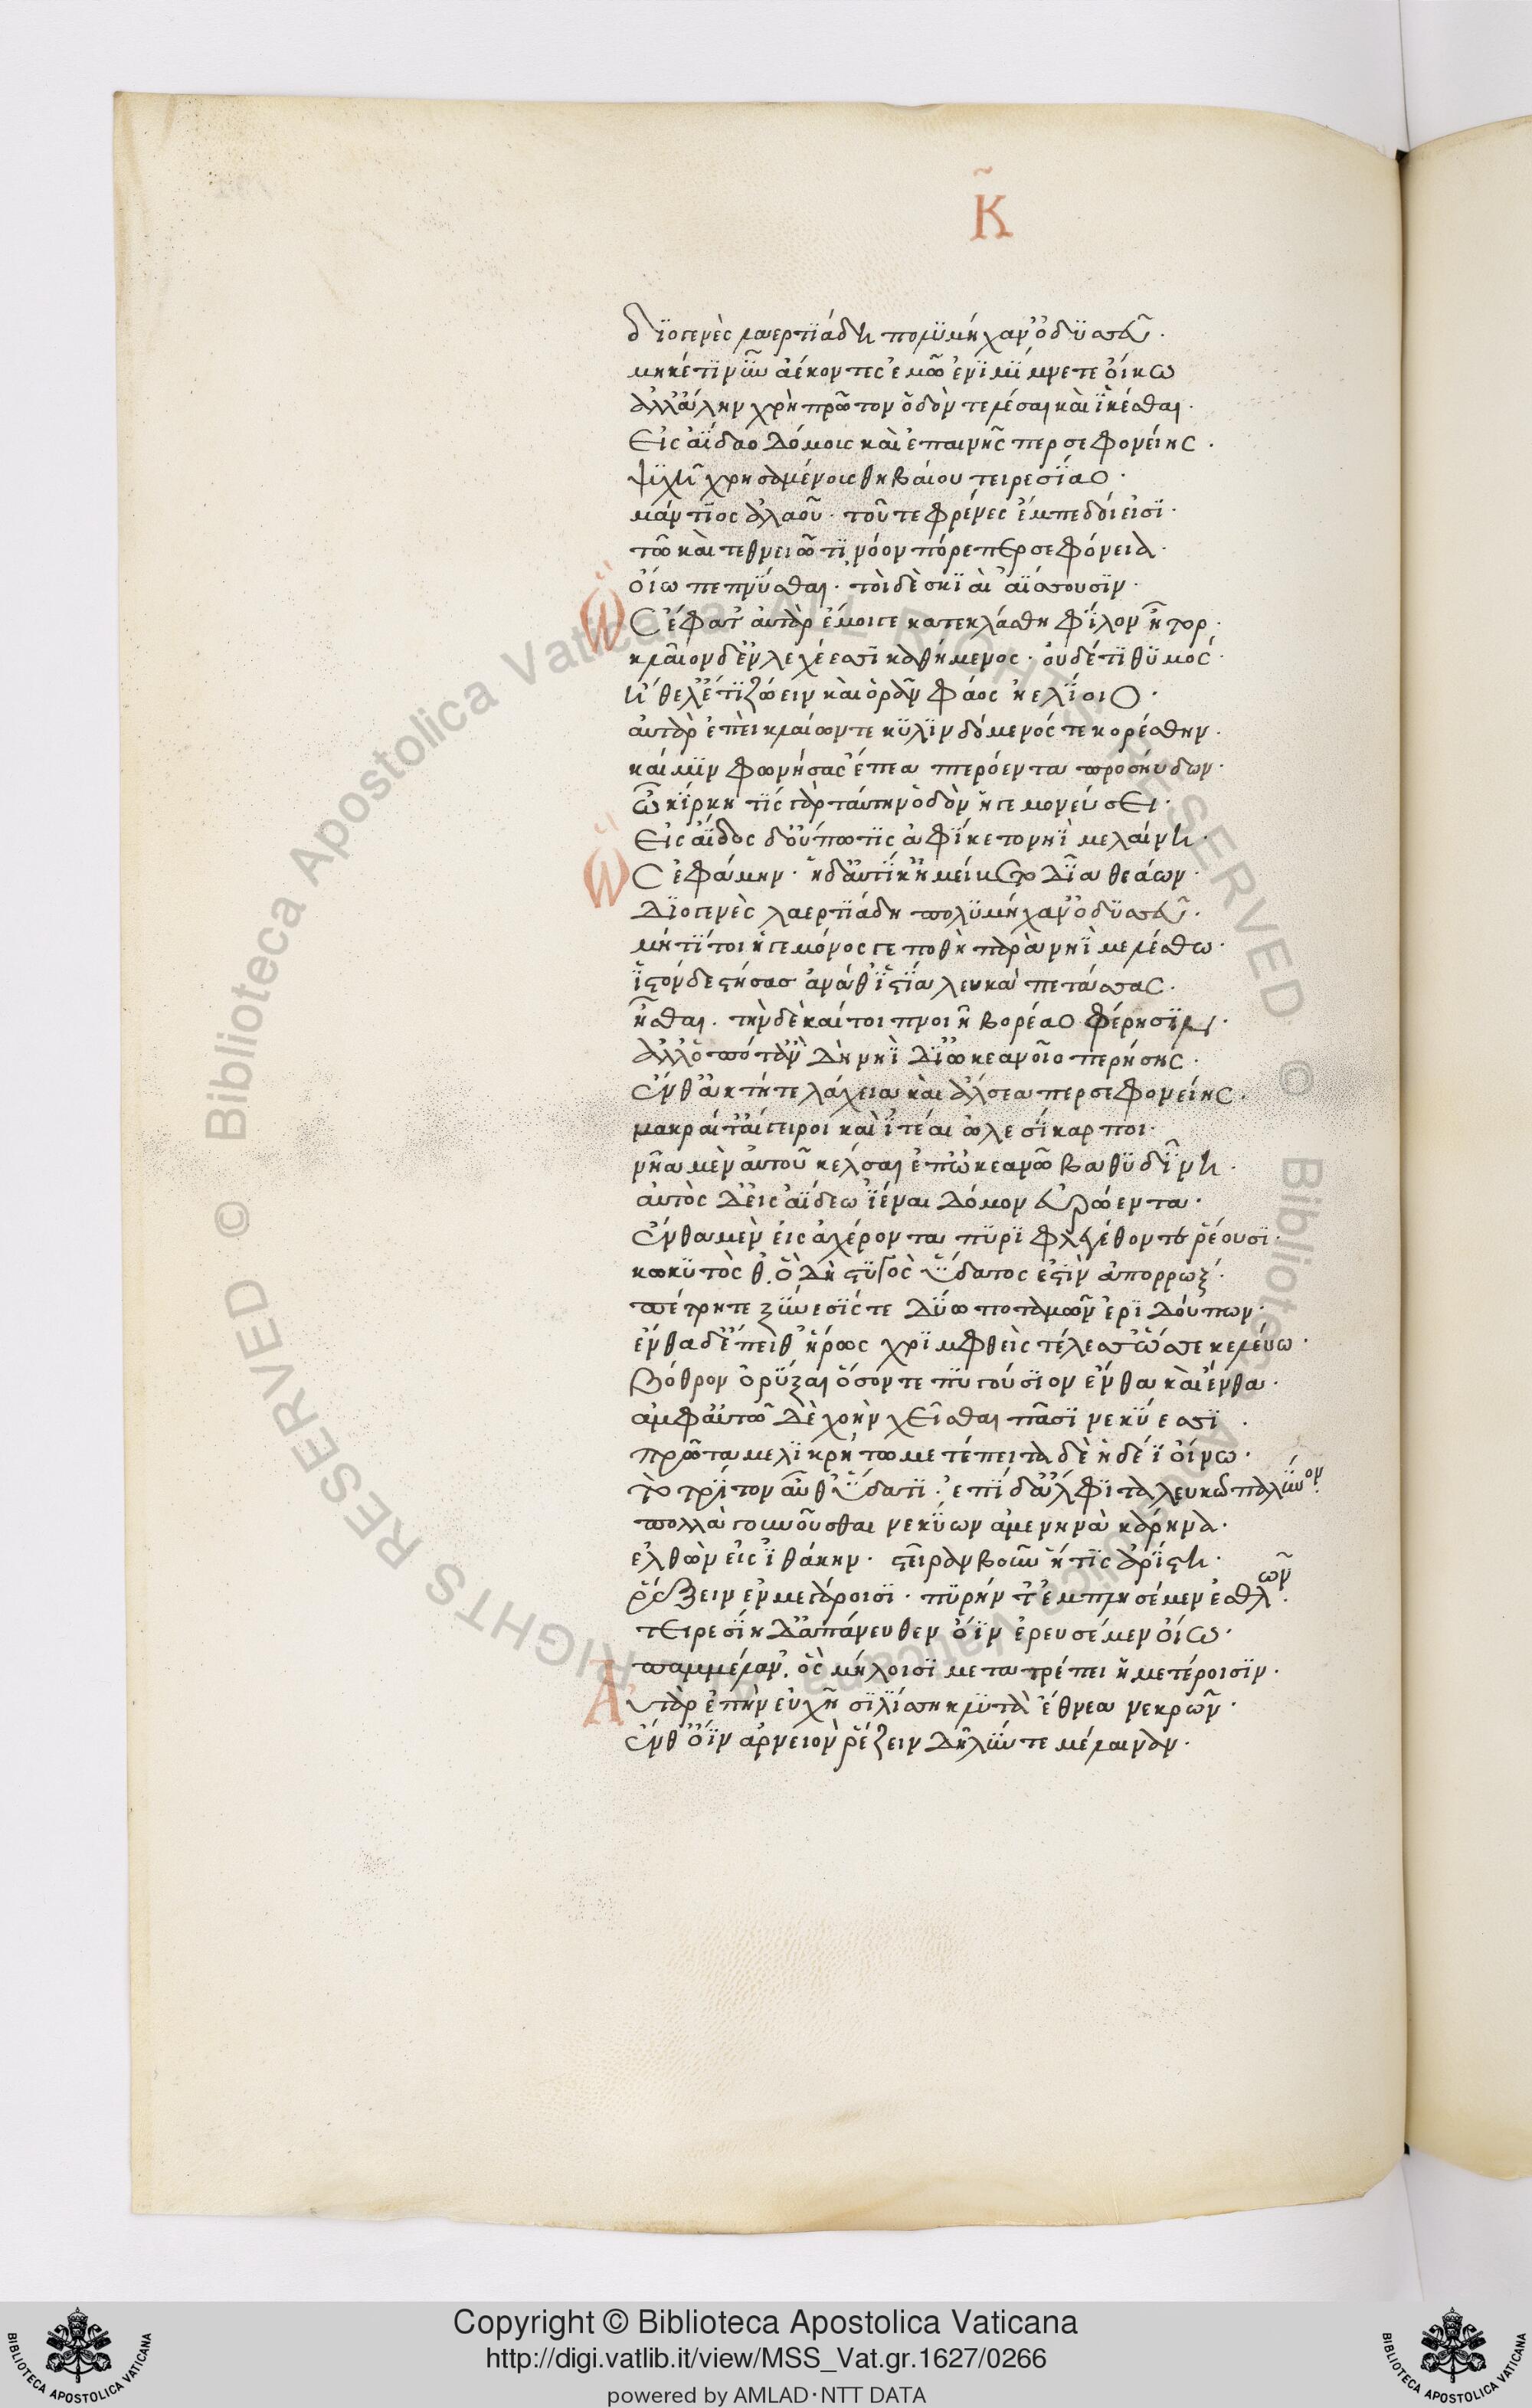 Κ̃
διογενὲς λαερτιάδη πολυμήχαν' ὀδυσσεῦ·
μηκέτι νῦν ἀέκοντες ἐμῶ ἐνὶ μίμνετε οἴκω
ἀλλ' ἄλλην χρὴ πρῶτον ὁδὸν τελέσαι καὶ ἱκέσθαι·
Εἰς ἀΐδαο δόμοις καὶ ἐπαινῆς περσεφονείης·
ψυχῆ χρησαμένοις θηβαίου τειρεσίαο·
μάντιος ἀλαοῦ· τοῦ τε φρένες ἔμπεδοί εἰσι·
τῶ καὶ τεθνειῶτι νόον πόρε περσεφόνεια·
οἴω πεπνύσθαι· τοὶ δὲ σκιαὶ ἀΐσσουσιν·
Ὣς ἔφατ' αὐτὰρ ἔμοιγε κατεκλάσθη φίλον ἦτορ·
κλαῖον δ' ἐν λεχέεσσι καθήμενος· οὐδέ τι θυμός·
ἤθελ' ἔτι ζώειν καὶ ὁρᾶν φάος ἠελίοιο·
αὐτὰρ ἐπεὶ κλαίων τε κυλινδόμενός τε κορέσθην·
καί μιν φωνήσας ἔπεα πτερόεντα προσηύδων·
ὦ κίρκη τίς γὰρ ταύτην ὁδὸν ἡγεμονεύσει·
Εἰς ἄϊδος δ' οὔπω τις ἀφίκετο νηῒ μελαίνη·
Ὣς ἐφάμην· ἡ δ' αὐτίκ' ἠμείβετο δῖα θεάων·
Διογενὲς λαερτιάδη πολυμήχαν' ὀδυσσεῦ·
μήτι τοι ἡγεμόνος γε ποθὴ παρὰ νηῒ μελέσθω·
ἱστὸν δὲ στήσας ἀνά θ' ἱστία λευκὰ πετάσσας·
ἧσθαι· τὴν δὲ καί τοι πνοιῆ βορέαο φέρησιν·
ἀλλ' ὁπόταν δὴ νηῒ δι' ὠκεανοῖο περήσης·
ἔνθ' ἀκτή τε λάχεια καὶ ἄλσεα περσεφονείης·
μακραί τ' αἴγειροι καὶ ἰτέαι ὠλεσίκαρποι·
νῆα μὲν αὐτοῦ κέλσαι ἐπ' ὠκεανῶ βαθυδίνη·
αὐτὸς δ' εἰς ἀΐδεω ἰέναι δόμον εὐρώεντα·
Ἔνθα μὲν εἰς ἀχέροντα πυριφλεγέθοντε ῥέουσι·
κωκυτὸς θ' ὃ δὴ στυγὸς ὕδατος ἐστὶν ἀπορρώξ·
πέτρη τε ξύνεσίς τε δύω ποταμῶν ἐριδούπων·
ἔνθα δ' ἔπειθ' ἥρως χριμφθεὶς πέλας ὥς σε κελεύω·
βόθρον ὀρύξαι ὅσόν τε πυγούσιον ἔνθα καὶ ἔνθα·
ἀμφ' αὐτῶ δὲ χοὴν χεῖσθαι πᾶσι νεκύεσσι·
πρῶτα μελικρήτω μετέπειτα δὲ ἡδέϊ οἴνω·
τὸ τρίτον αὖθ' ὕδατι· ἐπὶ δ' ἄλφιτα λευκὰ παλύνον·
πολλὰ γουνοῦσθαι νεκύων ἀμενηνὰ κάρηνα·
ἐλθὼν εἰς ἰθάκην· στεῖραν βοῦν ἥτις ἀρίστη·
ῥέξειν ἐν μεγάροισι· πυρήν τ' ἐμπλησέμεν ἐσθλῶν·
τειρεσίη δ' ἀπάνευθεν ὄϊν ἱερευσέμεν οἴω·
παμμέλαν· ὃς μήλοισι μεταπρέπει ἡμετέροισιν·
Αὐτὰρ ἐπὴν εὐχῆσι λίσση κλυτὰ ἔθνεα νεκρῶν·
ἔνθ' ὄϊν ἀρνειὸν ῥέζειν θῆλύν τε μέλαιναν·
Copyright © Biblioteca Apostolica Vaticana
http://digi.vatlib.it/view/MSS_Vat.gr.1627/0266
powered by AMLAD·NTT DATA